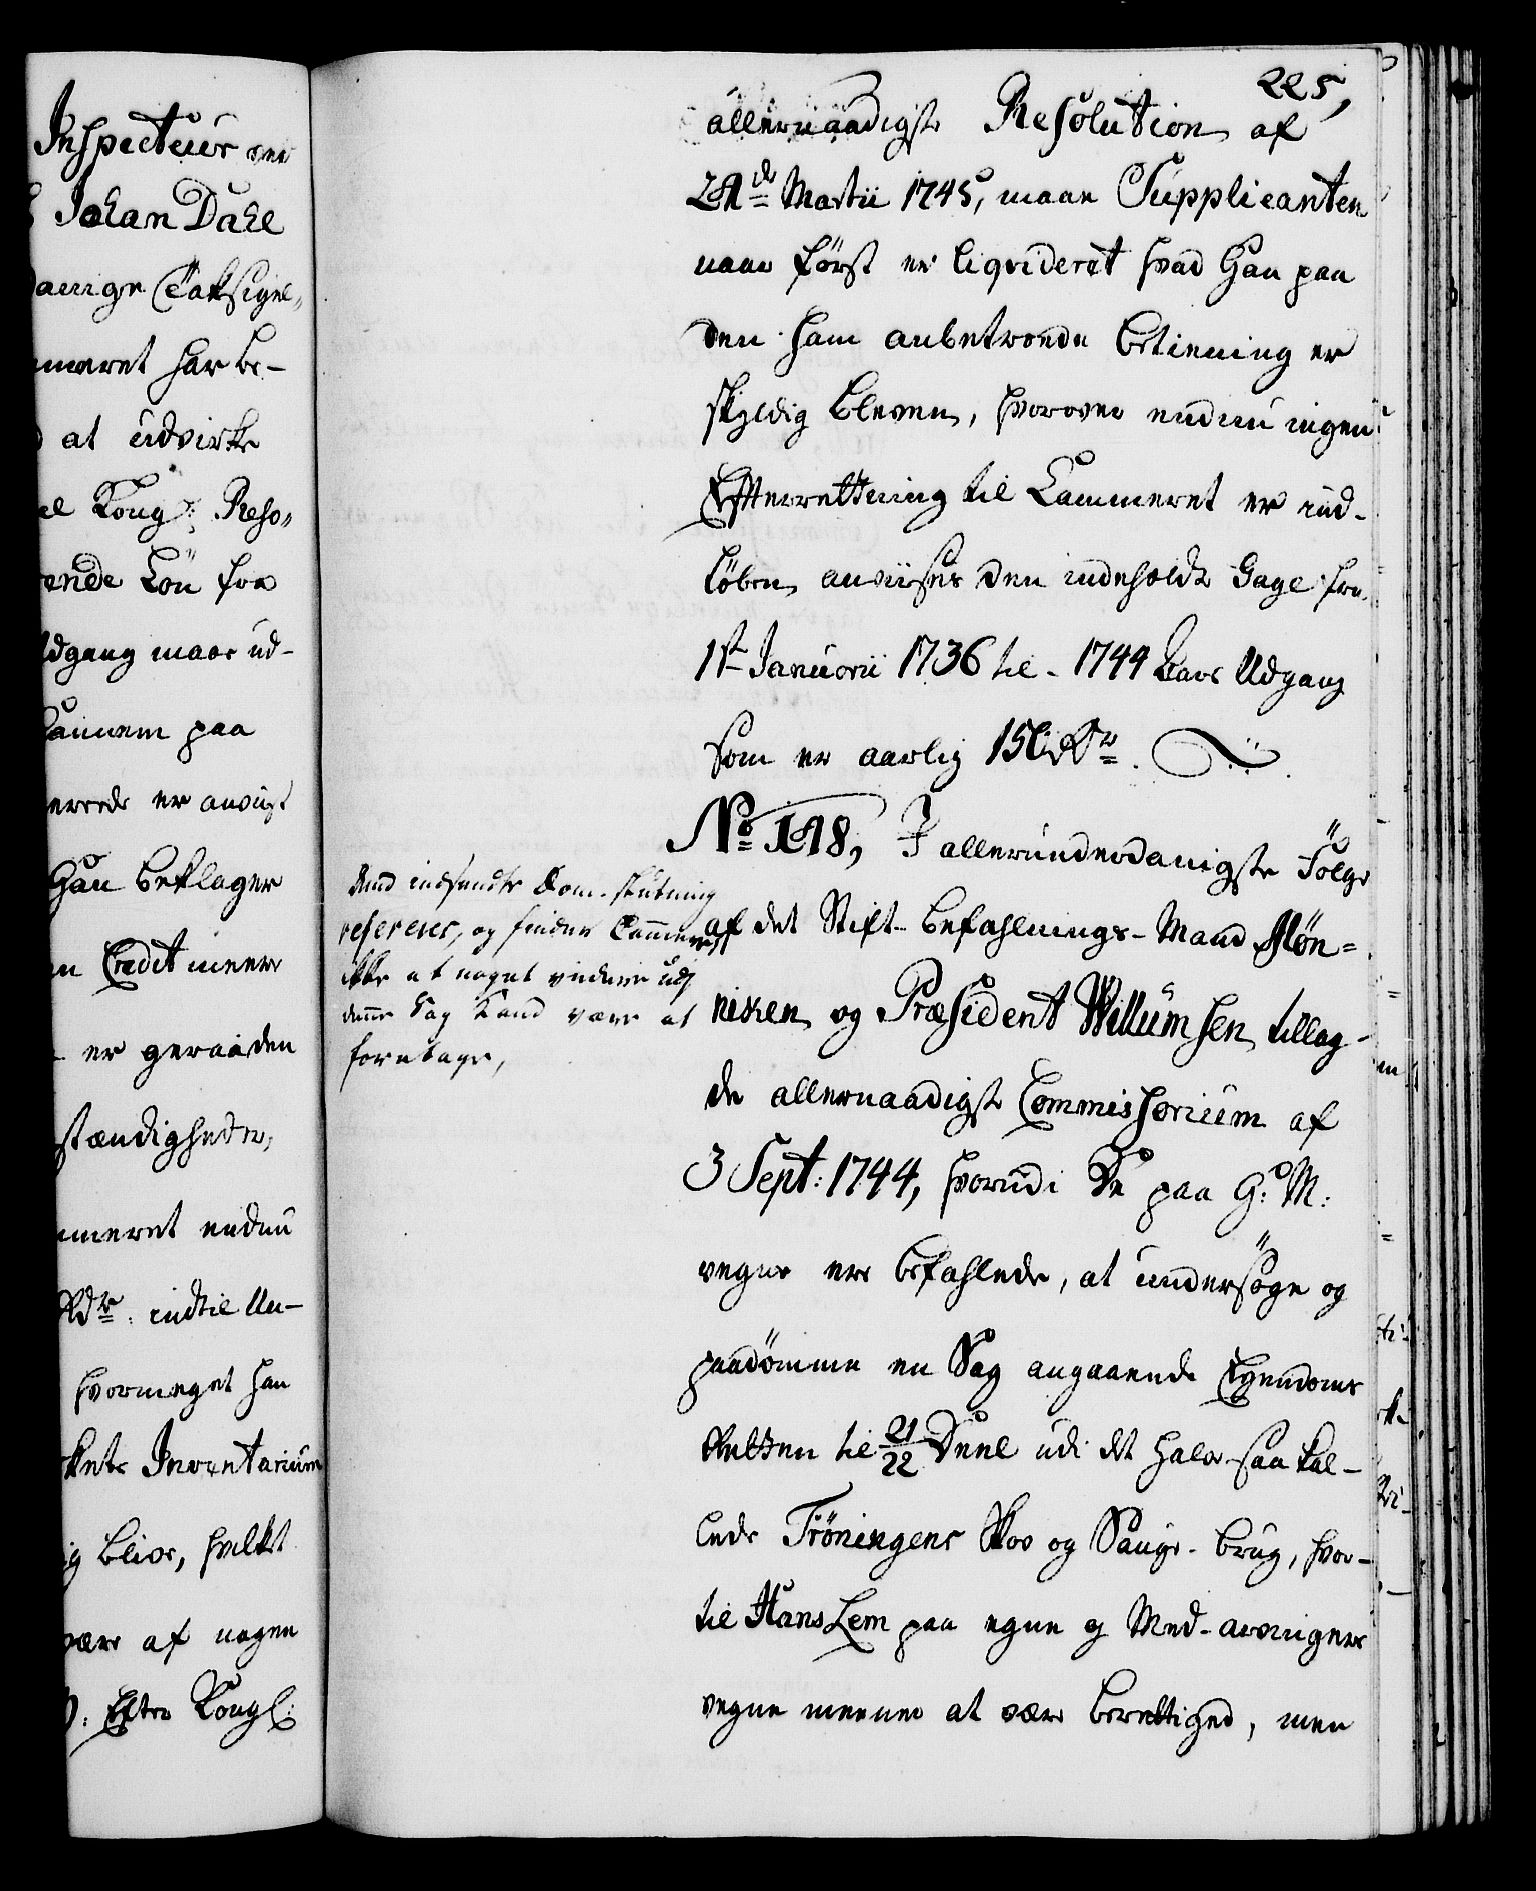 Inspecteur
Johan Dahl
danige Taksigel„
meret har be-
at udvirke
Kongl: Reso„
ende Lön fra
Udgang maae ud-
paa
er anviist
Han beklager
Credit meere
er geraaden
stændigheder,
meret endnu
Rdr: indtil
hvormeget han
Inventarium
blive, hvilket
være af nogen
Efter Kongl:
225,
allernaadigste Resolution af
Martii 1745, maae Supplicanten
naar först er liqvideret hvad Han paa
den ham anbetroede betiening er
skyldig bleven, hvorover endnu ingen
Efterretning til Cammeret er ind-
löben, anviises den indeholdte Gage fra
1ste Januarii 1736 til 1744 Aars Udgang
som er aarlig 150 Rdr.
No 148, I allerunderdanigste Fölge
af det Stift-befahlings-Mand Mön=
niken og Præsident Willumsen tillag-
de allernaadigste Commissorium af
3 Sept: 1744, hvorudi De paa H: M:
vegne ere befahlede, at undersöge og
paadömme en Sag angaaende Eyendoms
Retten til 21/22 Deel udi det hale saa kal-
lede Tröningens Skov og Sauge-brug, hvor-
til Hans Lem paa egne og Med-arvingers
vegne meener at være berettiged, men
indsendte Dom. slutning
refereres, og finder Cammeret
ikke at noget videre udj
denne Sag kand være at
foretage,